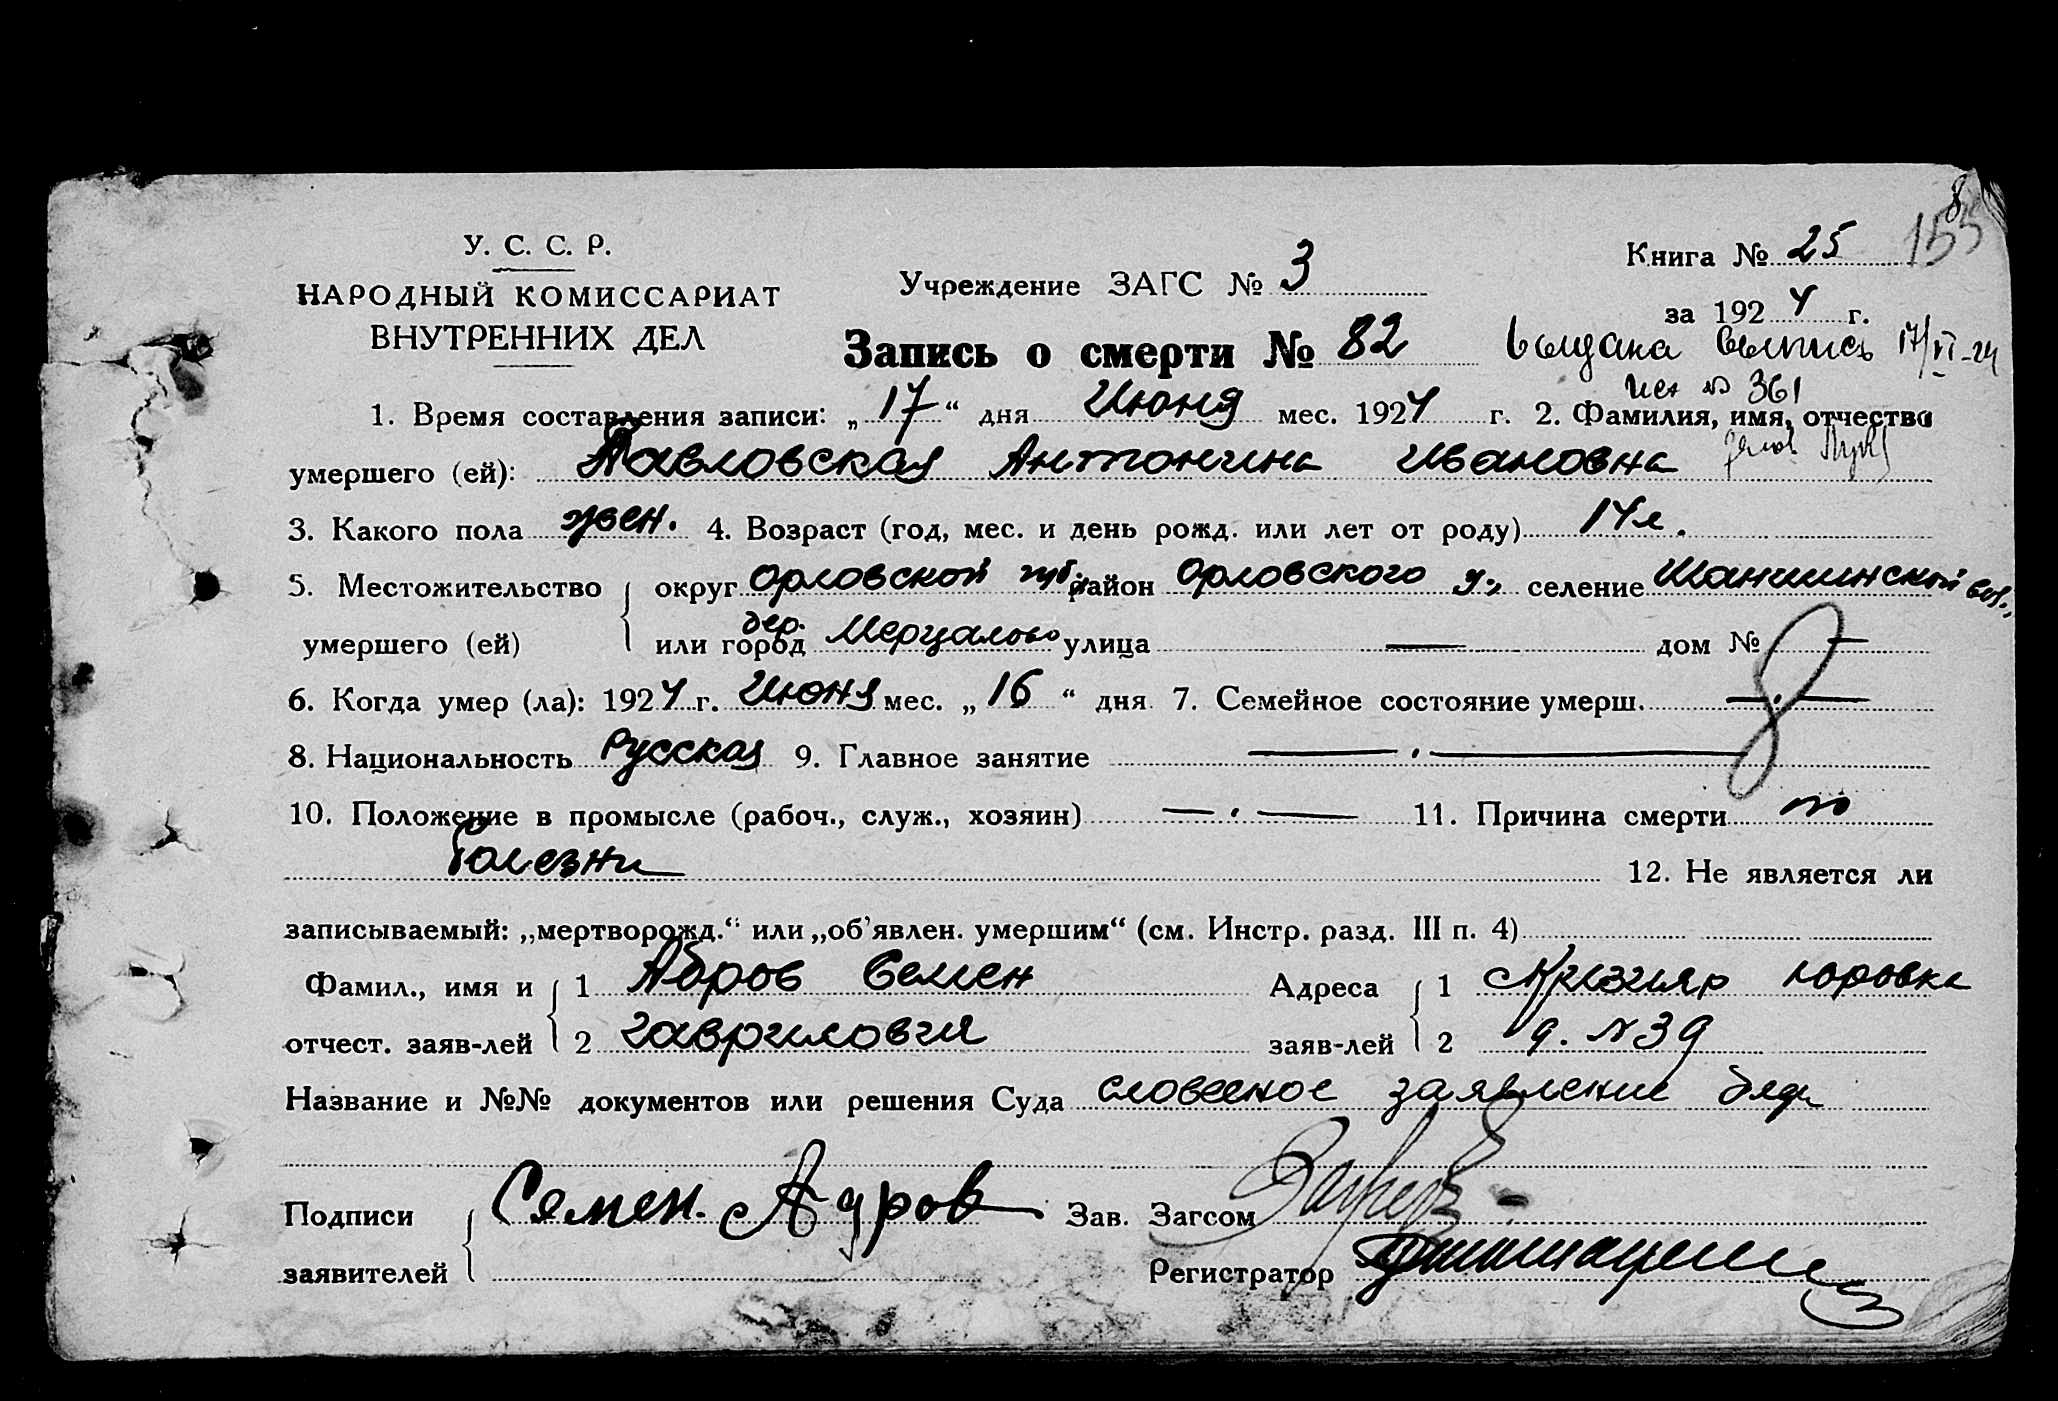 8
155
У. С. С. Р.
НАРОДНЫЙ КОМИССАРИАТ
ВНУТРЕННИХ ДЕЛ
Учреждение ЗАГС № 3
Книга № 25
за 1924 г.
Запись о смерти № 82
выдана выпись 17/VI-24
исх № 361
1. Время составления записи: „17“ дня Июня мес. 1924 г. 2. Фамилия, имя, отчество
умершего (ей): Павловская Антонина Ивановна
3. Какого пола жен. 4. Возраст (год, мес. и день рожд. или лет от роду) 14 л.
5. Местожительство округ Орловской губ. район Орловского у., селение Шаншинской вол.,
умершего (ей) или город дер. Мерцалово улица — дом № —
6. Когда умер (ла): 1924 г. Июня мес. „16“ дня 7. Семейное состояние умерш. —.—
8. Национальность Русская 9. Главное занятие —.—
10. Положение в промысле (рабоч., служ., хозяин) —.— 11. Причина смерти по
болезни
12. Не является ли
записываемый: „мертворожд.“ или „об'явлен. умершим“ (см. Инстр. разд. III п. 4)
Фамил., имя и 1 Абров Семен Адреса 1 юровка
отчест. заяв-лей 2 гаврилович заяв-лей 2 д. №39
Название и №№ документов или решения Суда словесное заявление
Подписи Семен. Зав. Загсом
заявителей Регистратор